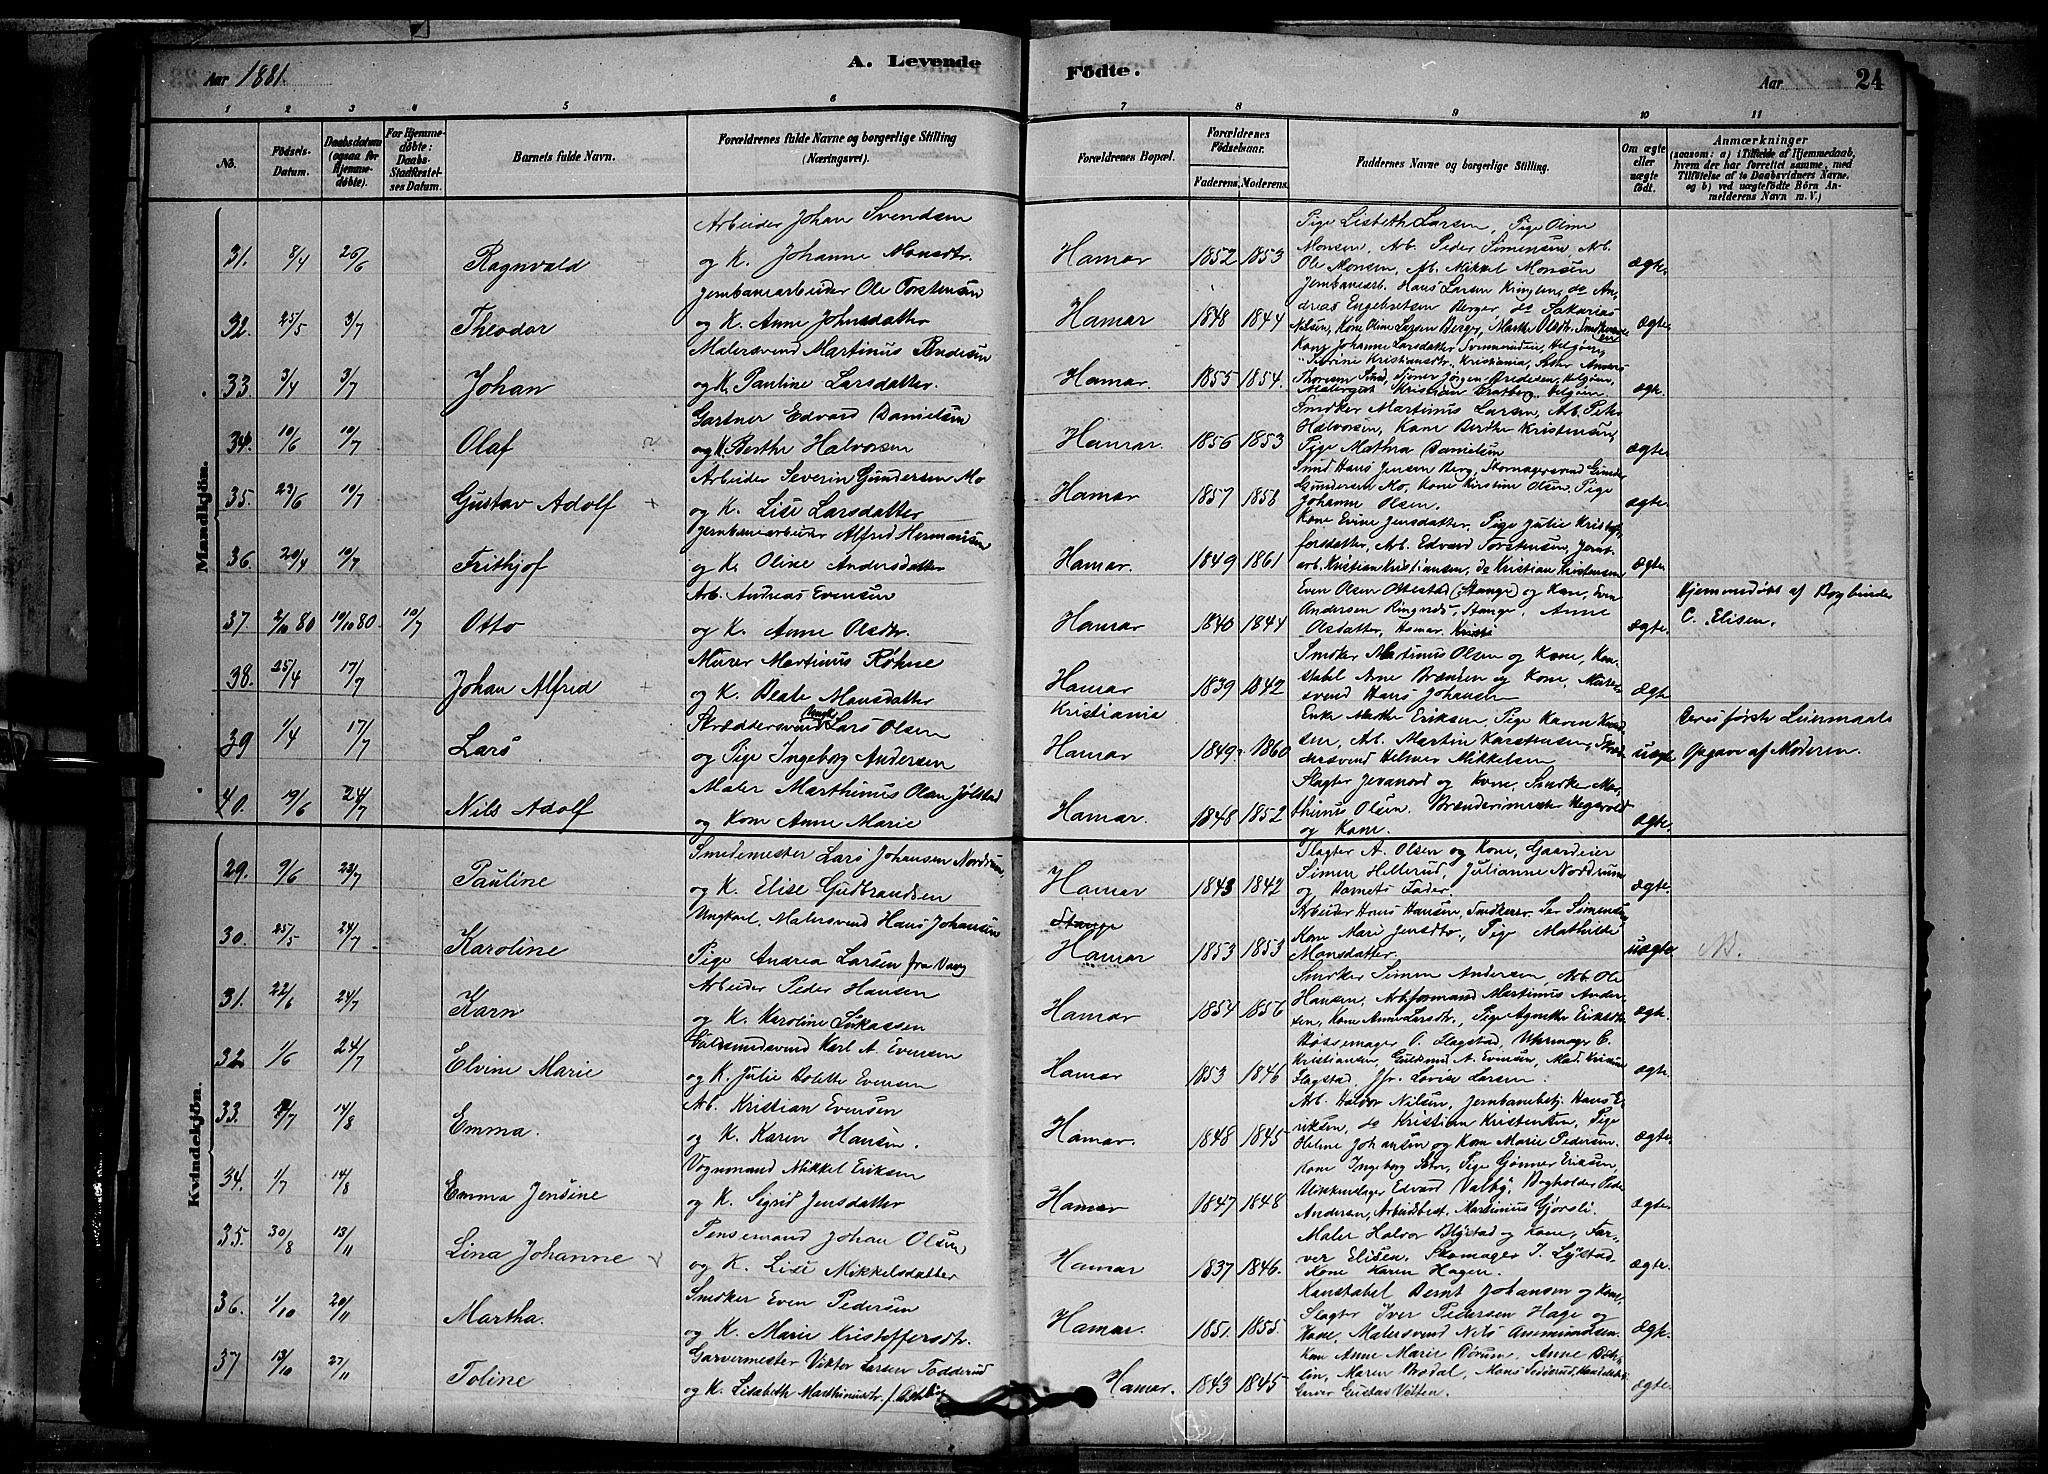 Aar 1881.
A. Levende
Födte.
Aar
24
1 2 3 4 5 6 7 8 9 10 11
No. Födsels-Datum. Daabsdatum (ogsaa for Hjemme-döbte). For Hjemme-döbte: Daabs-Stadfæstel-ses Datum. Barnets fulde Navn. Forældrenes fulde Navne og borgerlige Stilling (Næringsvei). Forældrenes Bopæl. Forældrenes Födselsaar. Faderens. Moderens. Faddernes Navne og borgerlige Stilling. Om ægte eller uægte födt. Anmærkninger (saasom: a) i Tilfælde af Hjemmedaab, hvem der har forrettet samme, med Tilföielse af to Daabsvidners Navne. og b) ved uægtefödte Börn An-melderens Navn m. V.)
Mandkjön.
Arbeider Johan Svendsen Pige Lisbeth Larsen, Pige Oline
31. 8/4 26/6 Ragnvald og K. Johanne Monsdtr. Hamar 1852 1853 Monsen, Arb. Peder Simensen, Arb. Ole Monsen, Arb. Mikkel Monsen ægte.
Jernbanearbeider Ole Torstensen Jernbanearb. Hans Larsen Kringlen, do An-
32. 25/5 3/7 Theodor og K. Anne Johnsdatter Hamar 1848 1844 dreas Engebretsen Berger, do Sakarias Nilsen, Kone Oline Larsen Berger, Marthe Olsdtr. ægte.
Malersvend Martinus Kone Johanne Larsdatter Helgöen,
33. 3/4 3/7 Johan og K. Pauline Larsdatter. Hamar. 1855 1854. Kristiansdtr. Kristiania, Anders Thoresen Jörgen Helgöen, Kristian Helgöen ægte.
Gartner Edvard Danielsen Smdker Martinus Larsen, Arb. Peter
34. 10/6 10/7 Olaf og K. Berthe Halvorsen Hamar. 1856 1853 Halvorsen, Kone Berthe Kristensen, Pige Mathea Danielsen ægte.
Arbeider Severin Gundersen Mo Smed Hans Jensen Berg, Skomagersvend
35. 23/6 10/7 Gustav Adolf + og K. Lise Larsdatter Hamar 1857 1858 Gundersen Mo, Kone Kirstine Olsen, Pige Johanne Olsen. ægte.
Jernbanearbeider Alfred Hermansen Kone Eline Jensdatter, Pige Julie Kristof-
36. 20/4 10/7 Frithjof og K. Oline Andersdatter Hamar. 1849 1861 fersdatter, Arb. Edvard Torstensen, Jernb. arb. Kristian Kristiansen, do Kristian Kristensen ægte.
Arb. Andreas Evensen Even Olsen Ottestad (Stange) og Kone, Even Hjemmedöbt af Bogbinder
37 2/10 80 10/10 80. 10/7 Otto og K. Anne Olsdtr. Hamar 1840 1844 Andersen Stange, Anne Olsdatter, Hamar ægte. C. Elisen.
Murer Martinus Röhne Smdker Martinus Olsen og Kone, Kon-
38. 25/4 17/7 Johan Alfred + og K. Beate Monsdatter Hamar 1839 1842 stabel Arne Brænden og Kone, Murer-svend Hans Johansen ægte
Skræddersvend Ungk. Lars Olsen Kristiania Enke Marthe Eriksen, Pige Karen Deres förste Leiermaal
39 1/4 17/7 Lars + og Pige Ingeborg Andersen Hamar 1849. 1860 Arb. Martin Karstensen, dersvend Helmer Mikkelsen uægte Opgave af Moderen.
Maler Marthinus Olsen Jölstad Slagter og Kone, Smdker Mar-
40. 19/6 24/7 Nils Adolf og Kone Anne Marie Hamar. 1848 1852 thinus Olsen. Brænderimester og Kone. ægte.
Kvindekjön.
Smedemester Lars Johansen Nordrum, Slagter A. Olsen og Kone, Gaardeier
29. 9/6 23/7 Pauline og K. Elise Gudbrandsen Hamar 1843 1842 Simen Hillerud, Julianne Nordrum og Barnets Fader. ægte.
Ungkarl, Malersvend Hans Johansen Stange Arbeider Hans Hansen, Smdkerer Per Simensen,
30. 25/5 24/7 Karoline Pige Andrea Larsen fra Vang Hamar 1853 1853 Kone Mari Jensdtr., Pige Mathilde Monsdatter. uægte N.
Arbeider Peder Hansen Smdker Simen Andersen, Arb. Ole
31. 22/6 24/7 Karn og K. Karoline Lukassen Hamar 1854 1856 Hansen, Arbformand Martinus Ander-sen, Kone Anne Larsdtr., Pige Agnethe Eriksdtr. ægte.
Guldsmedsvend Karl A. Evensen Bössemager O. Slagstad, Uhrmager C.
32 1/6 24/7 Elvine Marie og K. Julie Bolette Evensen Hamar 1853 1846 Kristiansen, Guldsmd A. Evensen, Mad. Slagstad, Jfr. Lovise Larsen. ægte.
Arb. Kristian Evensen Arb. Halvor Nilsen, Jernbanebetj. Hans E-
33. 2/7 14/8 Emma. og K. Karen Hansen. Hamar. 1848 1845 riksen, do Kristian Kristensen, Pige Helene Johansen og Kone Marie Pedersen. ægte
Vognmand Mikkel Eriksen Kone Ingeborg Stor, Pige Gjönner Eriksen,
34. 1/7 14/8 Emma Jensine og K. Sigrid Jensdatter Hamar 1847 1848 Blikkenslager Edvard Valby, Bogholder Peder Andersen, Arbeidsbest. Martinius Gjörsli. ægte.
Pensemand Johan Olsen Maler Halvor og Kone, Far-
35. 30/8 13/11 Lina Johanne og K. Lise Mikkelsdatter Hamar 1837 1846. ver Elisen, Skomager J. Lystad, Kone Karen Hagen. ægte.
Smdker Even Pedersen Konstabel Bernt Johansen og Kone,
36. 1/10 20/11 Martha. og K. Marie Kristoffersdtr. Hamar. 1851. 1855. Slagter Iver Pedersen Hage og Kone, Malersvend Nils Ammundsen. ægte.
Garvermester Viktor Larsen Todderud Kone Anne Marie Börum, Anne
37 13/10 27/11 Toline og K. Lisabeth Marthinusdtr. Hamar. 1843 1845 Maren Hans Garver Gustav ægte.